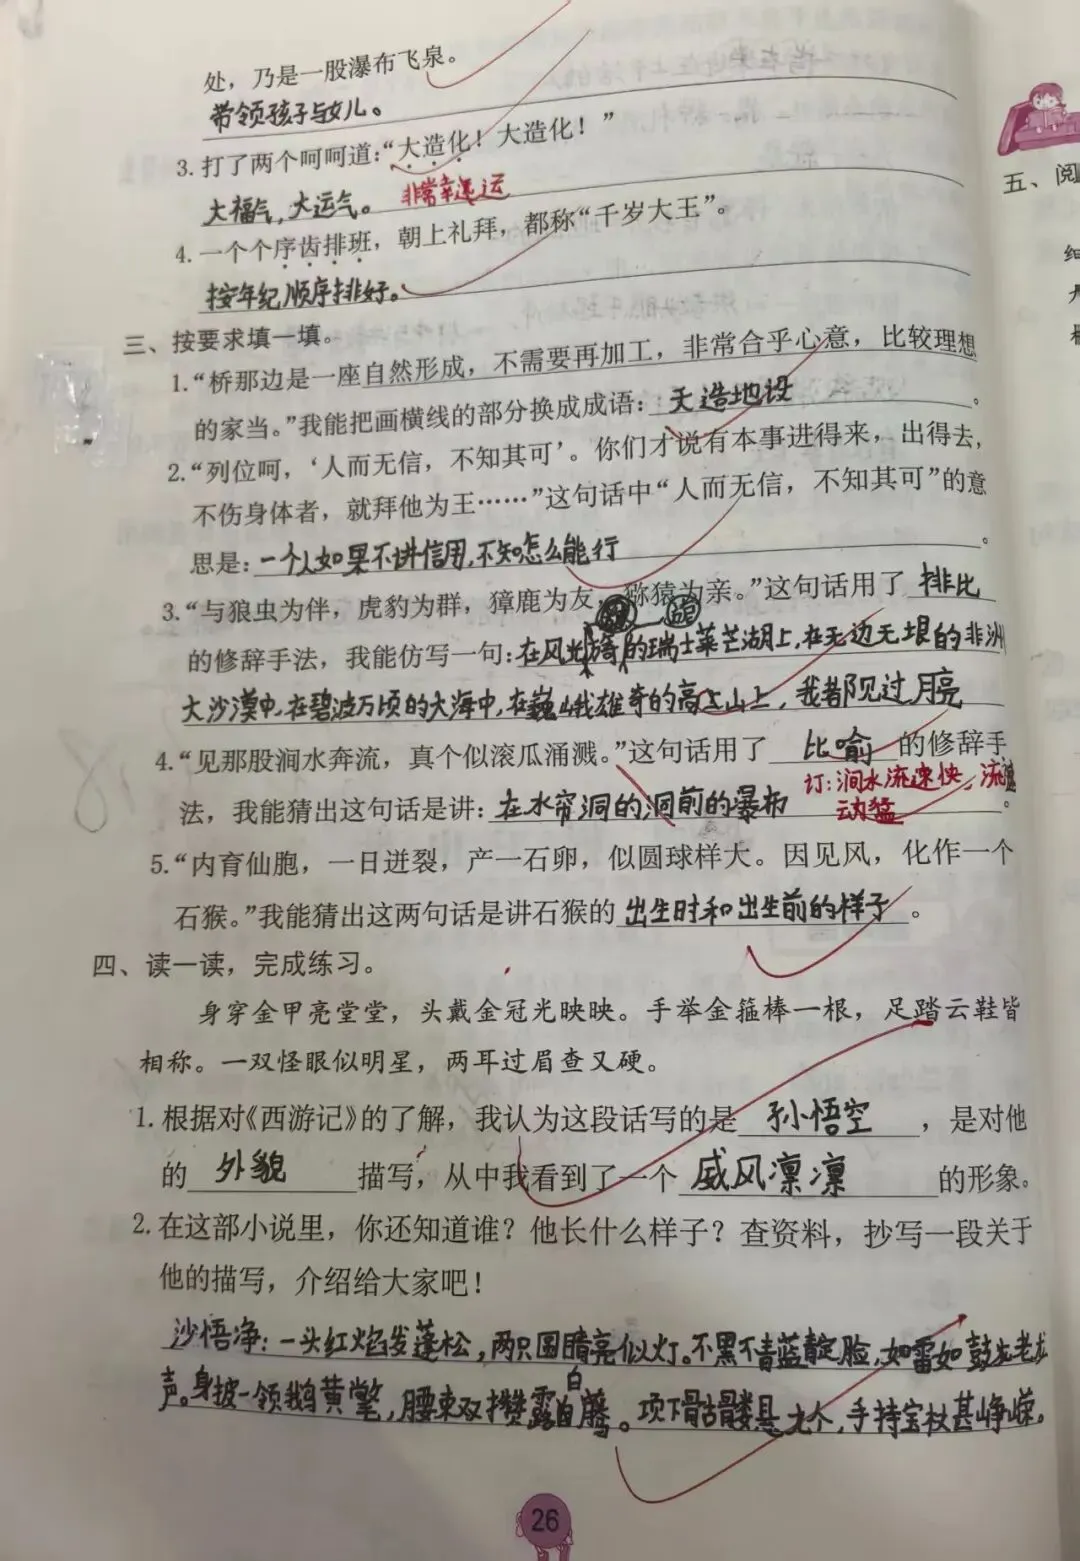 处，乃是一股瀑布飞泉。
带领孩子与女儿。
3.打了两个呵呵道：“大造化！大造化！”
大福气，大运气。 非常幸运
4.一个个序齿排班，朝上礼拜，都称“千岁大王”。
按年纪顺序排好。
三、按要求填一填。
1.“桥那边是一座自然形成，不需要再加工，非常合乎心意，比较理想
的家当。”我能把画横线的部分换成成语：天造地设。
2.“列位呵，‘人而无信，不知其可’。你们才说有本事进得来，出得去，
不伤身体者，就拜他为王……”这句话中“人而无信，不知其可”的意
思是：一个人如果不讲信用，不知怎么能行。
3.“与狼虫为伴，虎豹为群，獐鹿为友，猕猿为亲。”这句话用了 排比
的修辞手法，我能仿写一句：在风光旖旎的瑞士莱芒湖上，在无边无垠的非洲
大沙漠中，在碧波万顷的大海中，在巍峨雄奇的高山上，我都见过月亮
4.“见那股涧水奔流，真个似滚瓜涌溅。”这句话用了 比喻 的修辞手
订：涧水流速快，流
法，我能猜出这句话是讲：在水帘洞的洞前的瀑布。
动猛
5.“内育仙胞，一日迸裂，产一石卵，似圆球样大。因见风，化作一个
石猴。”我能猜出这两句话是讲石猴的 出生时和出生前的样子。
四、读一读，完成练习。
身穿金甲亮堂堂，头戴金冠光映映。手举金箍棒一根，足踏云鞋皆
相称。一双怪眼似明星，两耳过眉查又硬。
1.根据对《西游记》的了解，我认为这段话写的是 孙悟空 ，是对他
的 外貌 描写，从中我看到了一个 威风凛凛 的形象。
2.在这部小说里，你还知道谁？他长什么样子？查资料，抄写一段关于
他的描写，介绍给大家吧！
沙悟净：一头红焰发蓬松，两只圆睛亮似灯。不黑不青蓝靛脸，如雷如鼓老龙
声。身披一领鹅黄氅，腰束双攒露白藤。项下骷髅悬九个，手持宝杖甚峥嵘。
26
五、阅